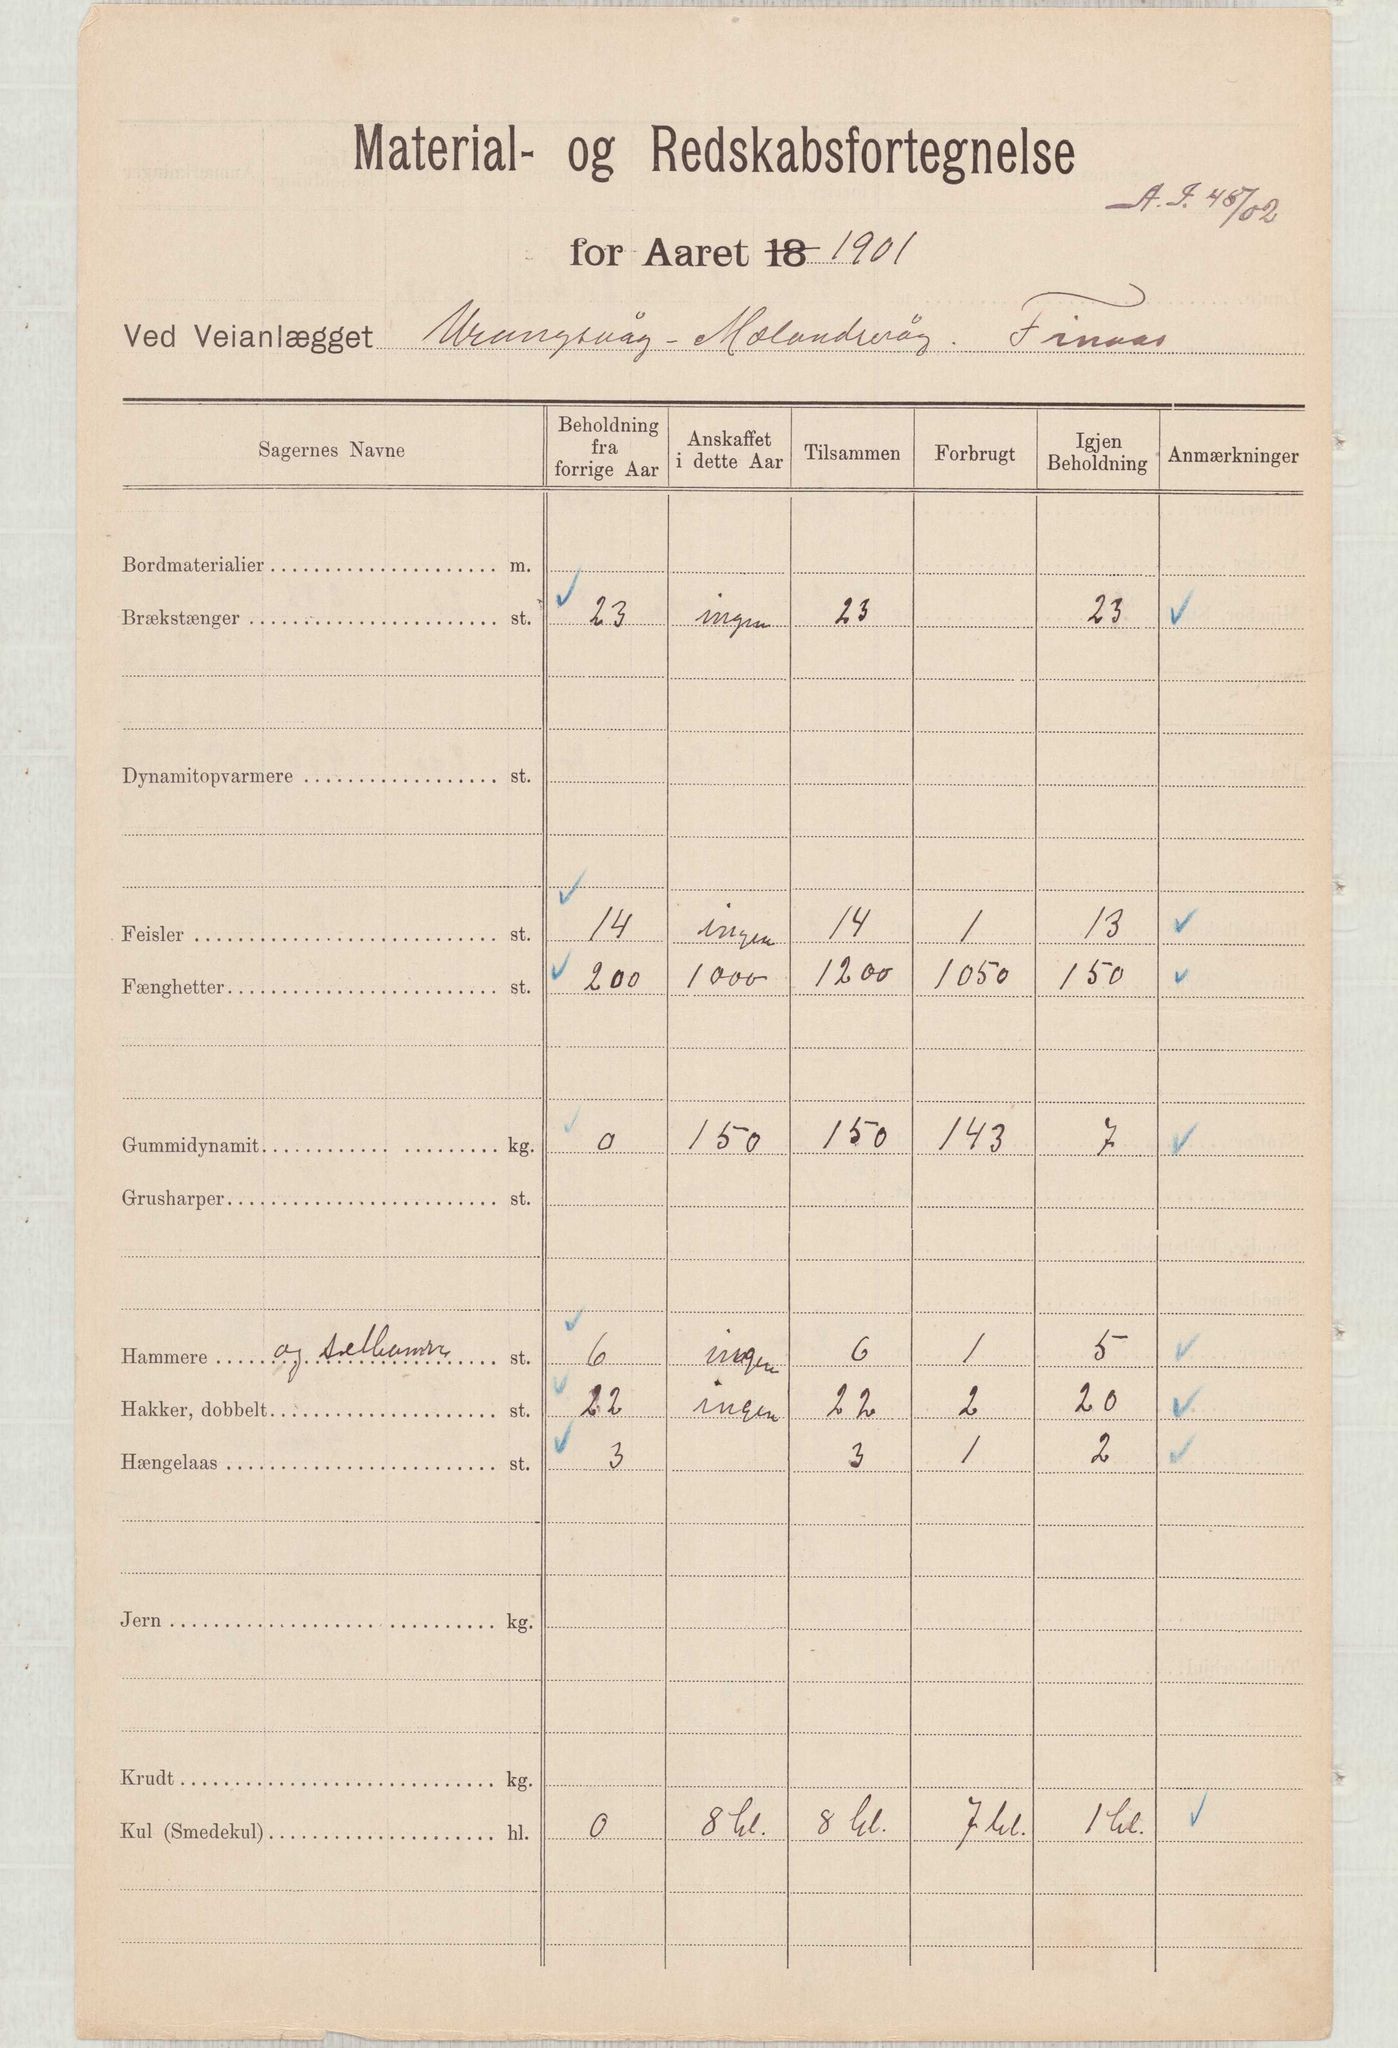 Material- og Redskabsfortegnelse
A. J. 48/02
for Aaret 18 1901
Ved Veianlægget Urangsvåg - Mælandsvåg. Finaas
Sagernes Navne Beholdning fra forrige Aar Anskaffet i dette Aar Tilsammen Forbrugt Igjen Beholdning Anmærkninger
Bordmaterialier m.
Brækstænger st. ✓ 23 ingen 23 23 ✓
Dynamitopvarmere st.
Feisler st. ✓ 14 ingen 14 1 13 ✓
Fænghetter st. ✓ 200 1000 1200 1050 150 ✓
Gummidynamit kg. ✓ 0 150 150 143 7 ✓
Grusharper st.
Hammere og st. ✓ 6 ingen 6 1 5 ✓
Hakker, dobbelt st. ✓ 22 ingen 22 2 20 ✓
Hængelaas st. ✓ 3 3 1 2 ✓
Jern kg.
Krudt kg.
Kul (Smedekul) hl. 0 8 hl. 8 hl. 7 hl. 1 hl. ✓